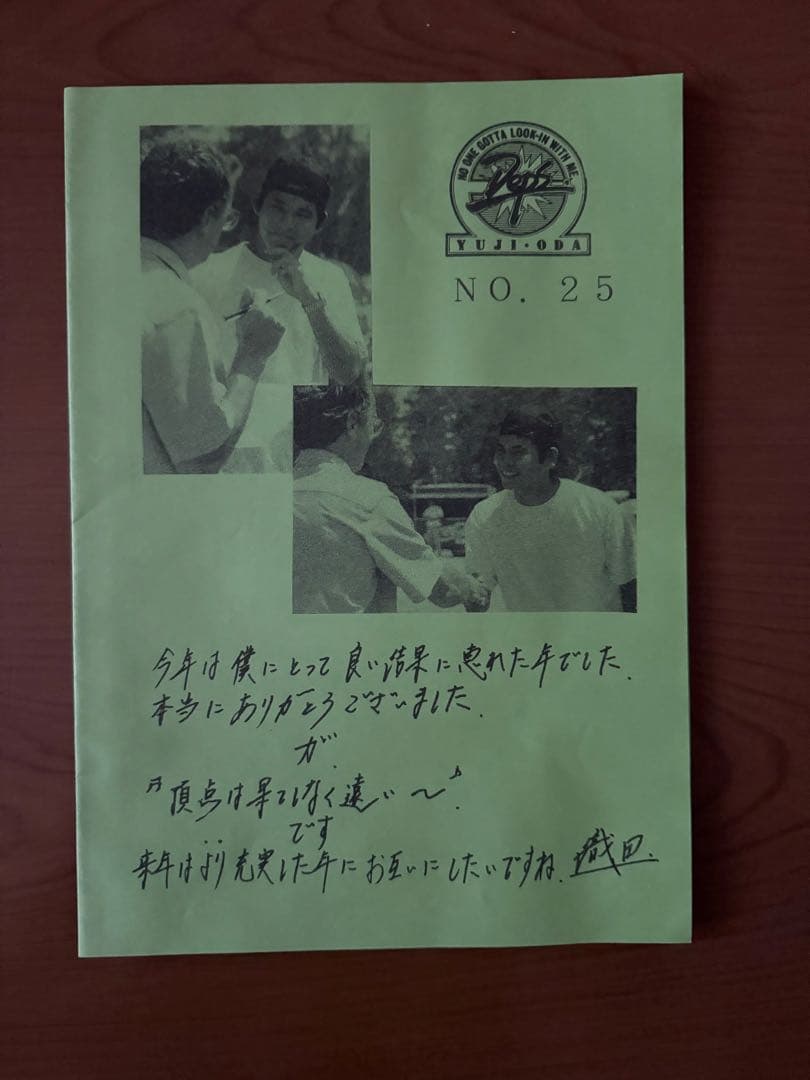 NO ONE GOTTA LOOK-IN WITH ME.
Deps
YUJI・ODA
NO. 25
今年は僕にとって良い結果に恵れた年でした.
本当にありがとうございました.
が.
〃頂点は果てしなく遠い〜♪.
です
来年はより充実した年にお互いにしたいですね. 織田.